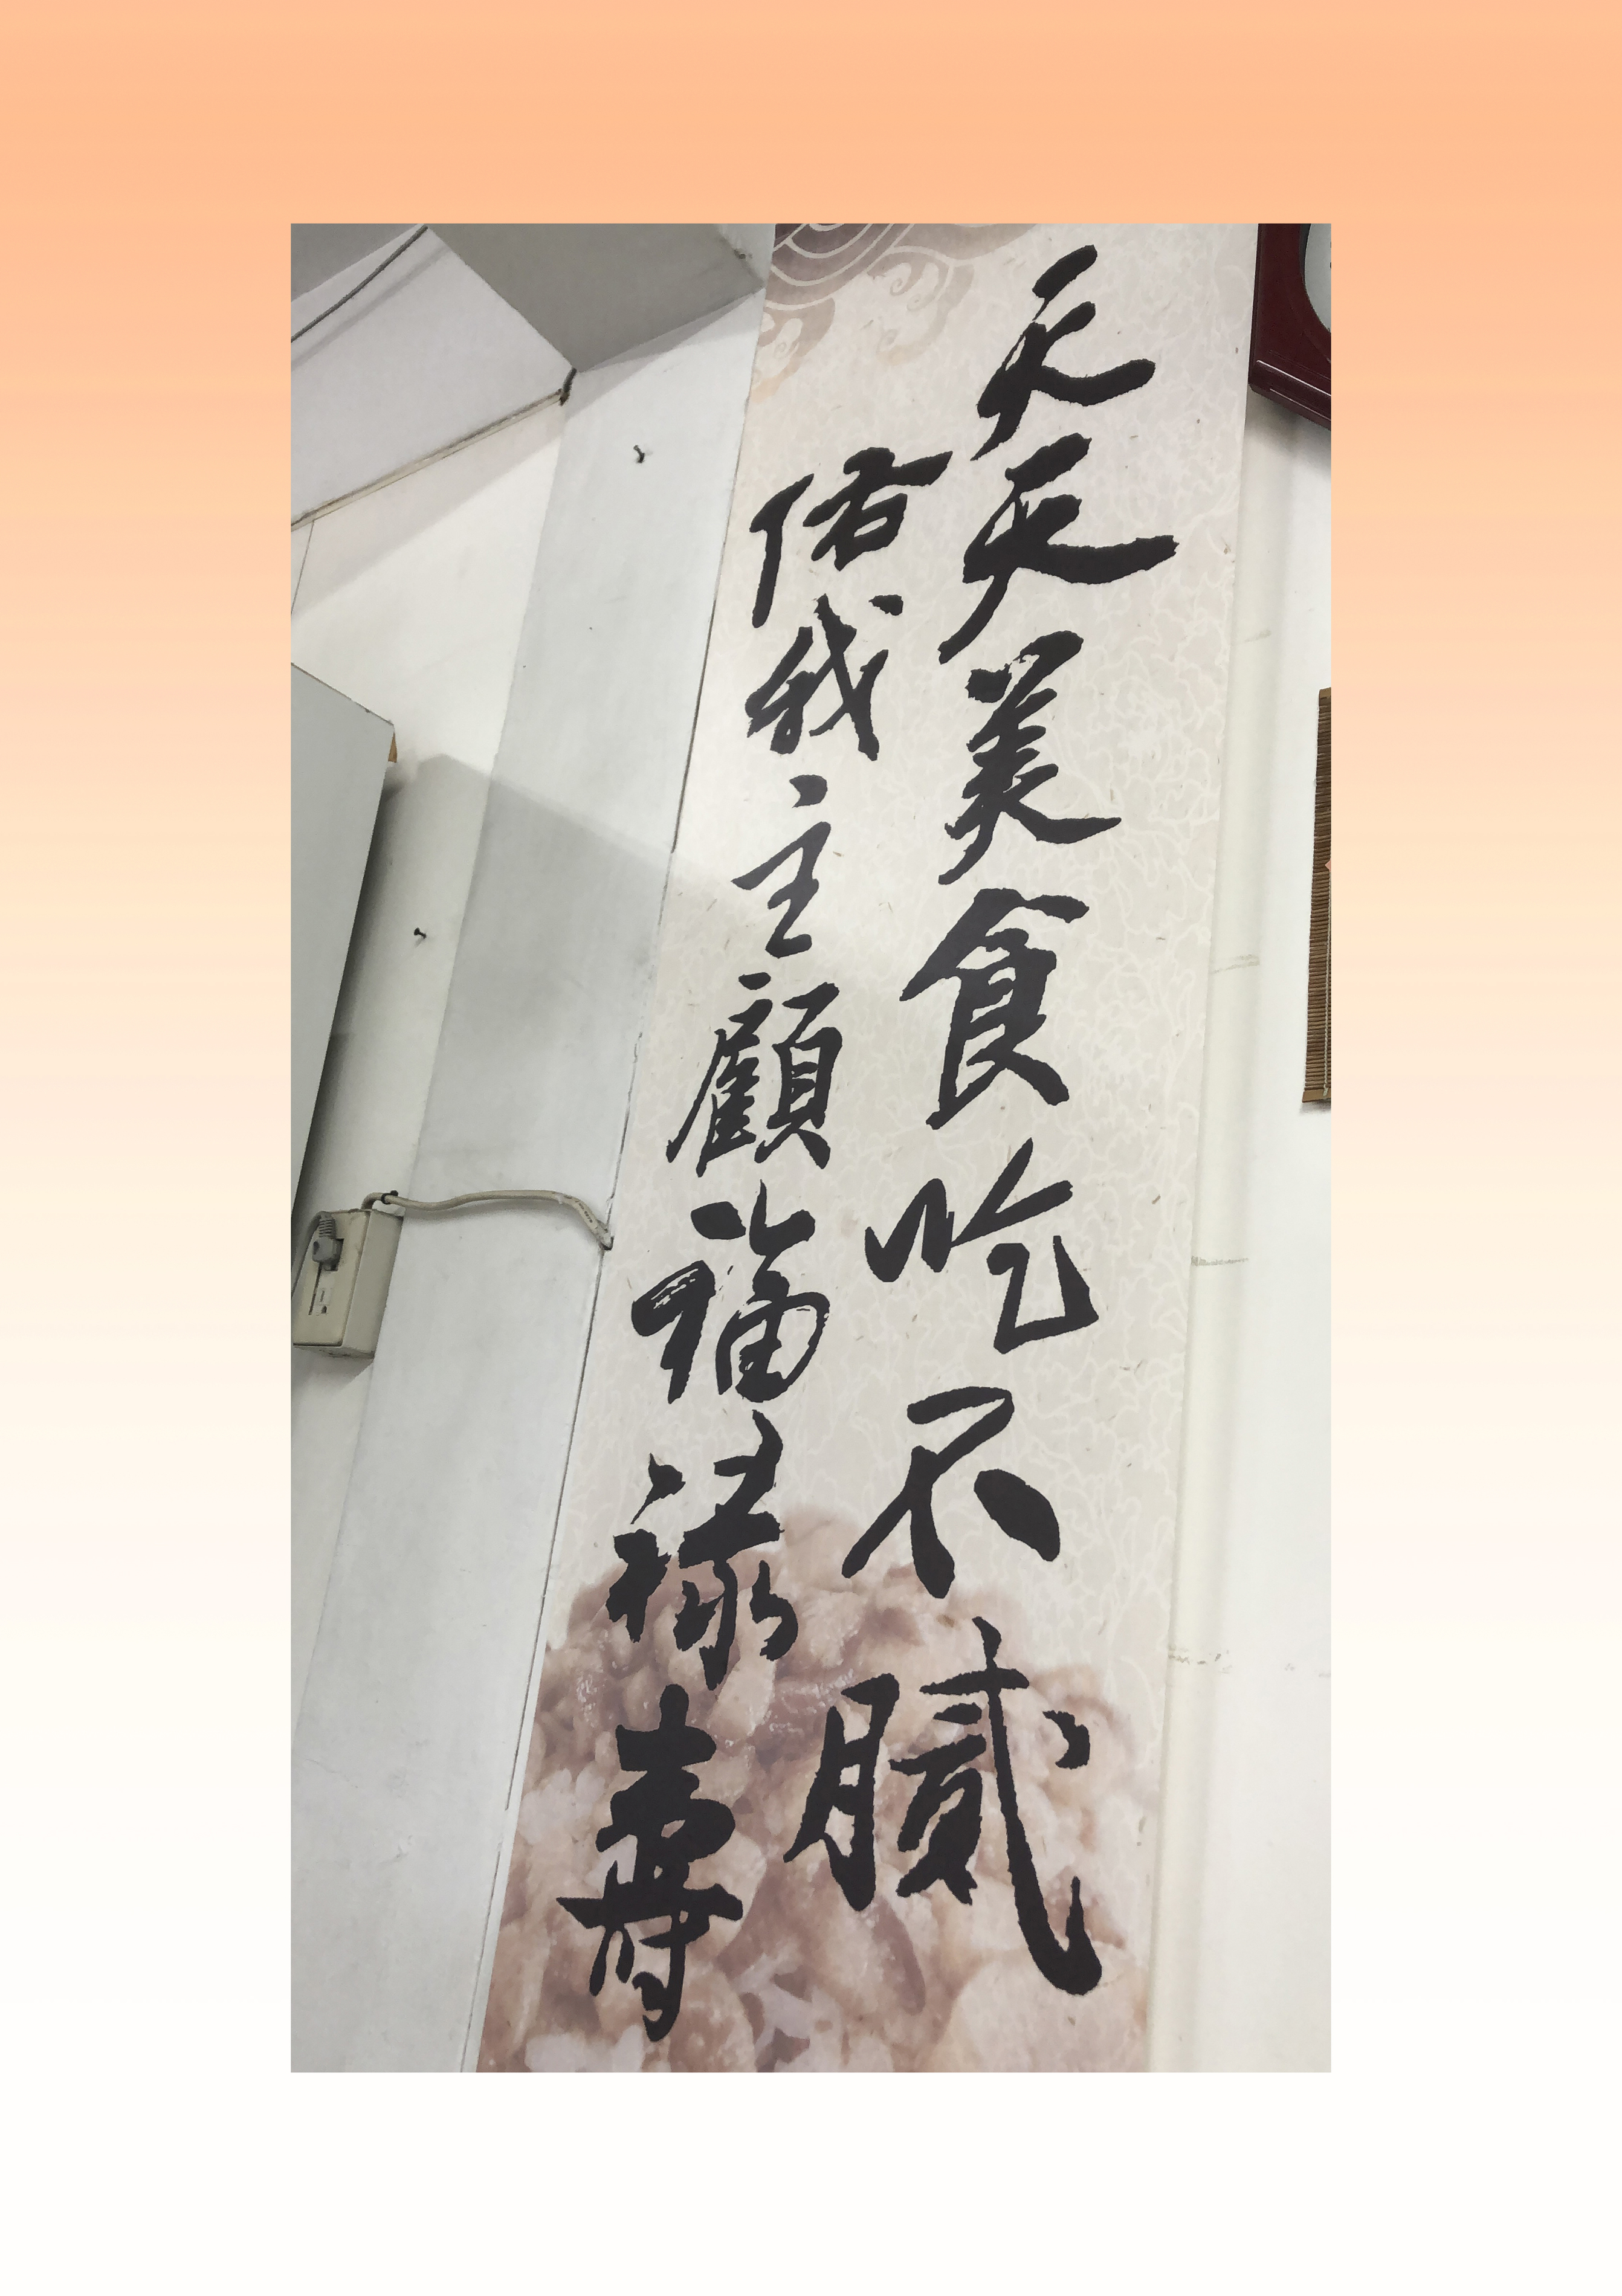 天天美食吃不膩
佑我主顧福祿壽